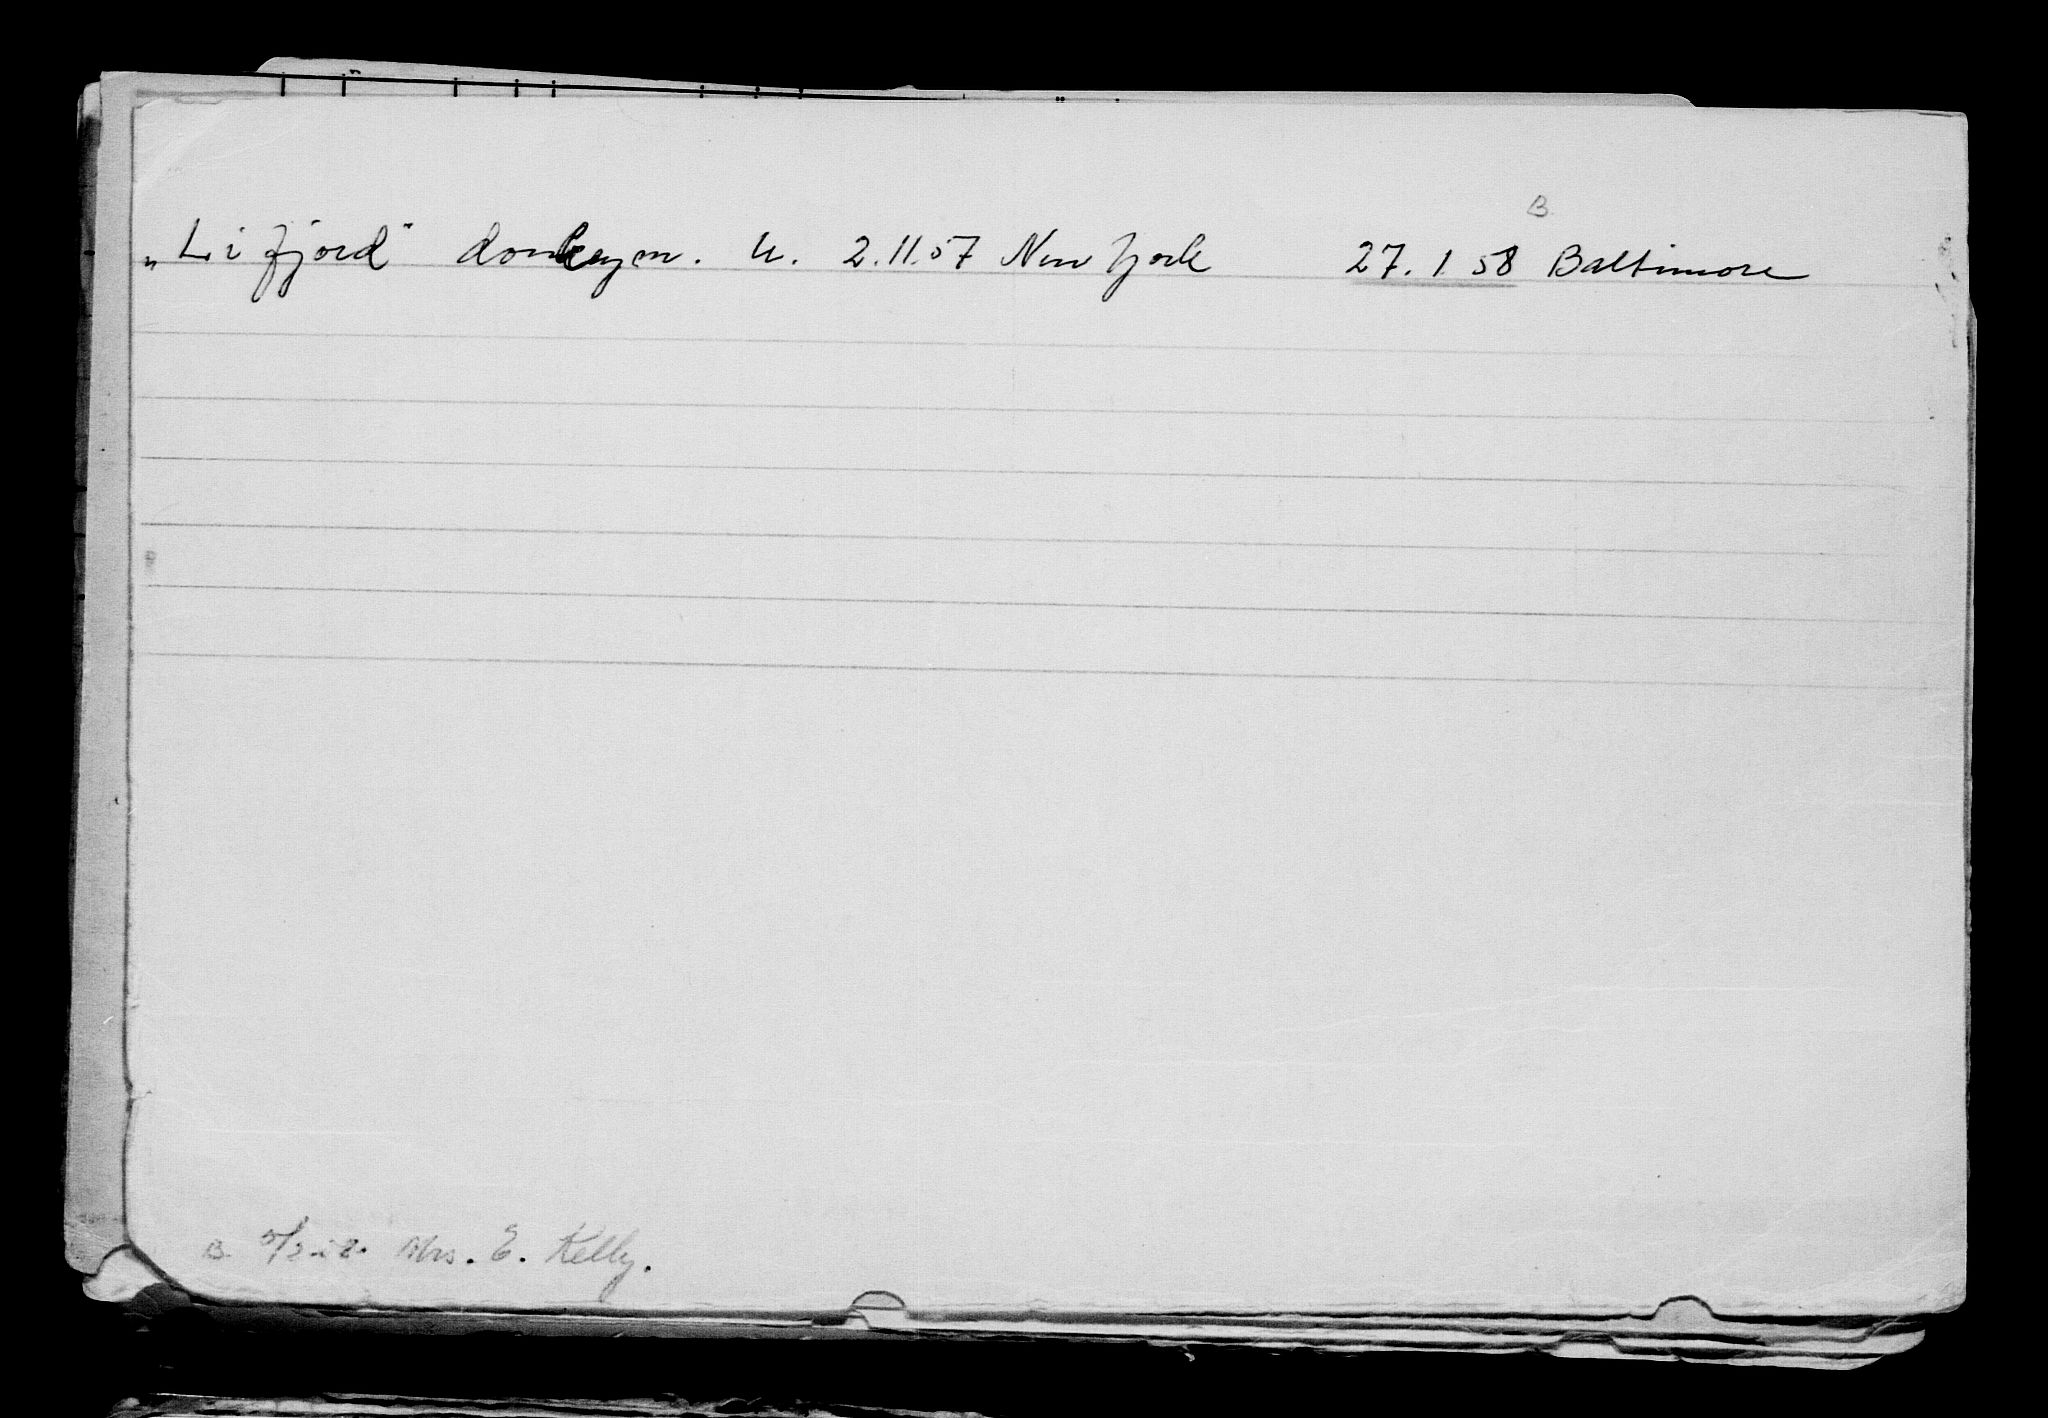 B
„Li fjord" donkeym. U. 2.11.57 New York 27.1 58 Baltimore
B. Mrs. E. Kelly.